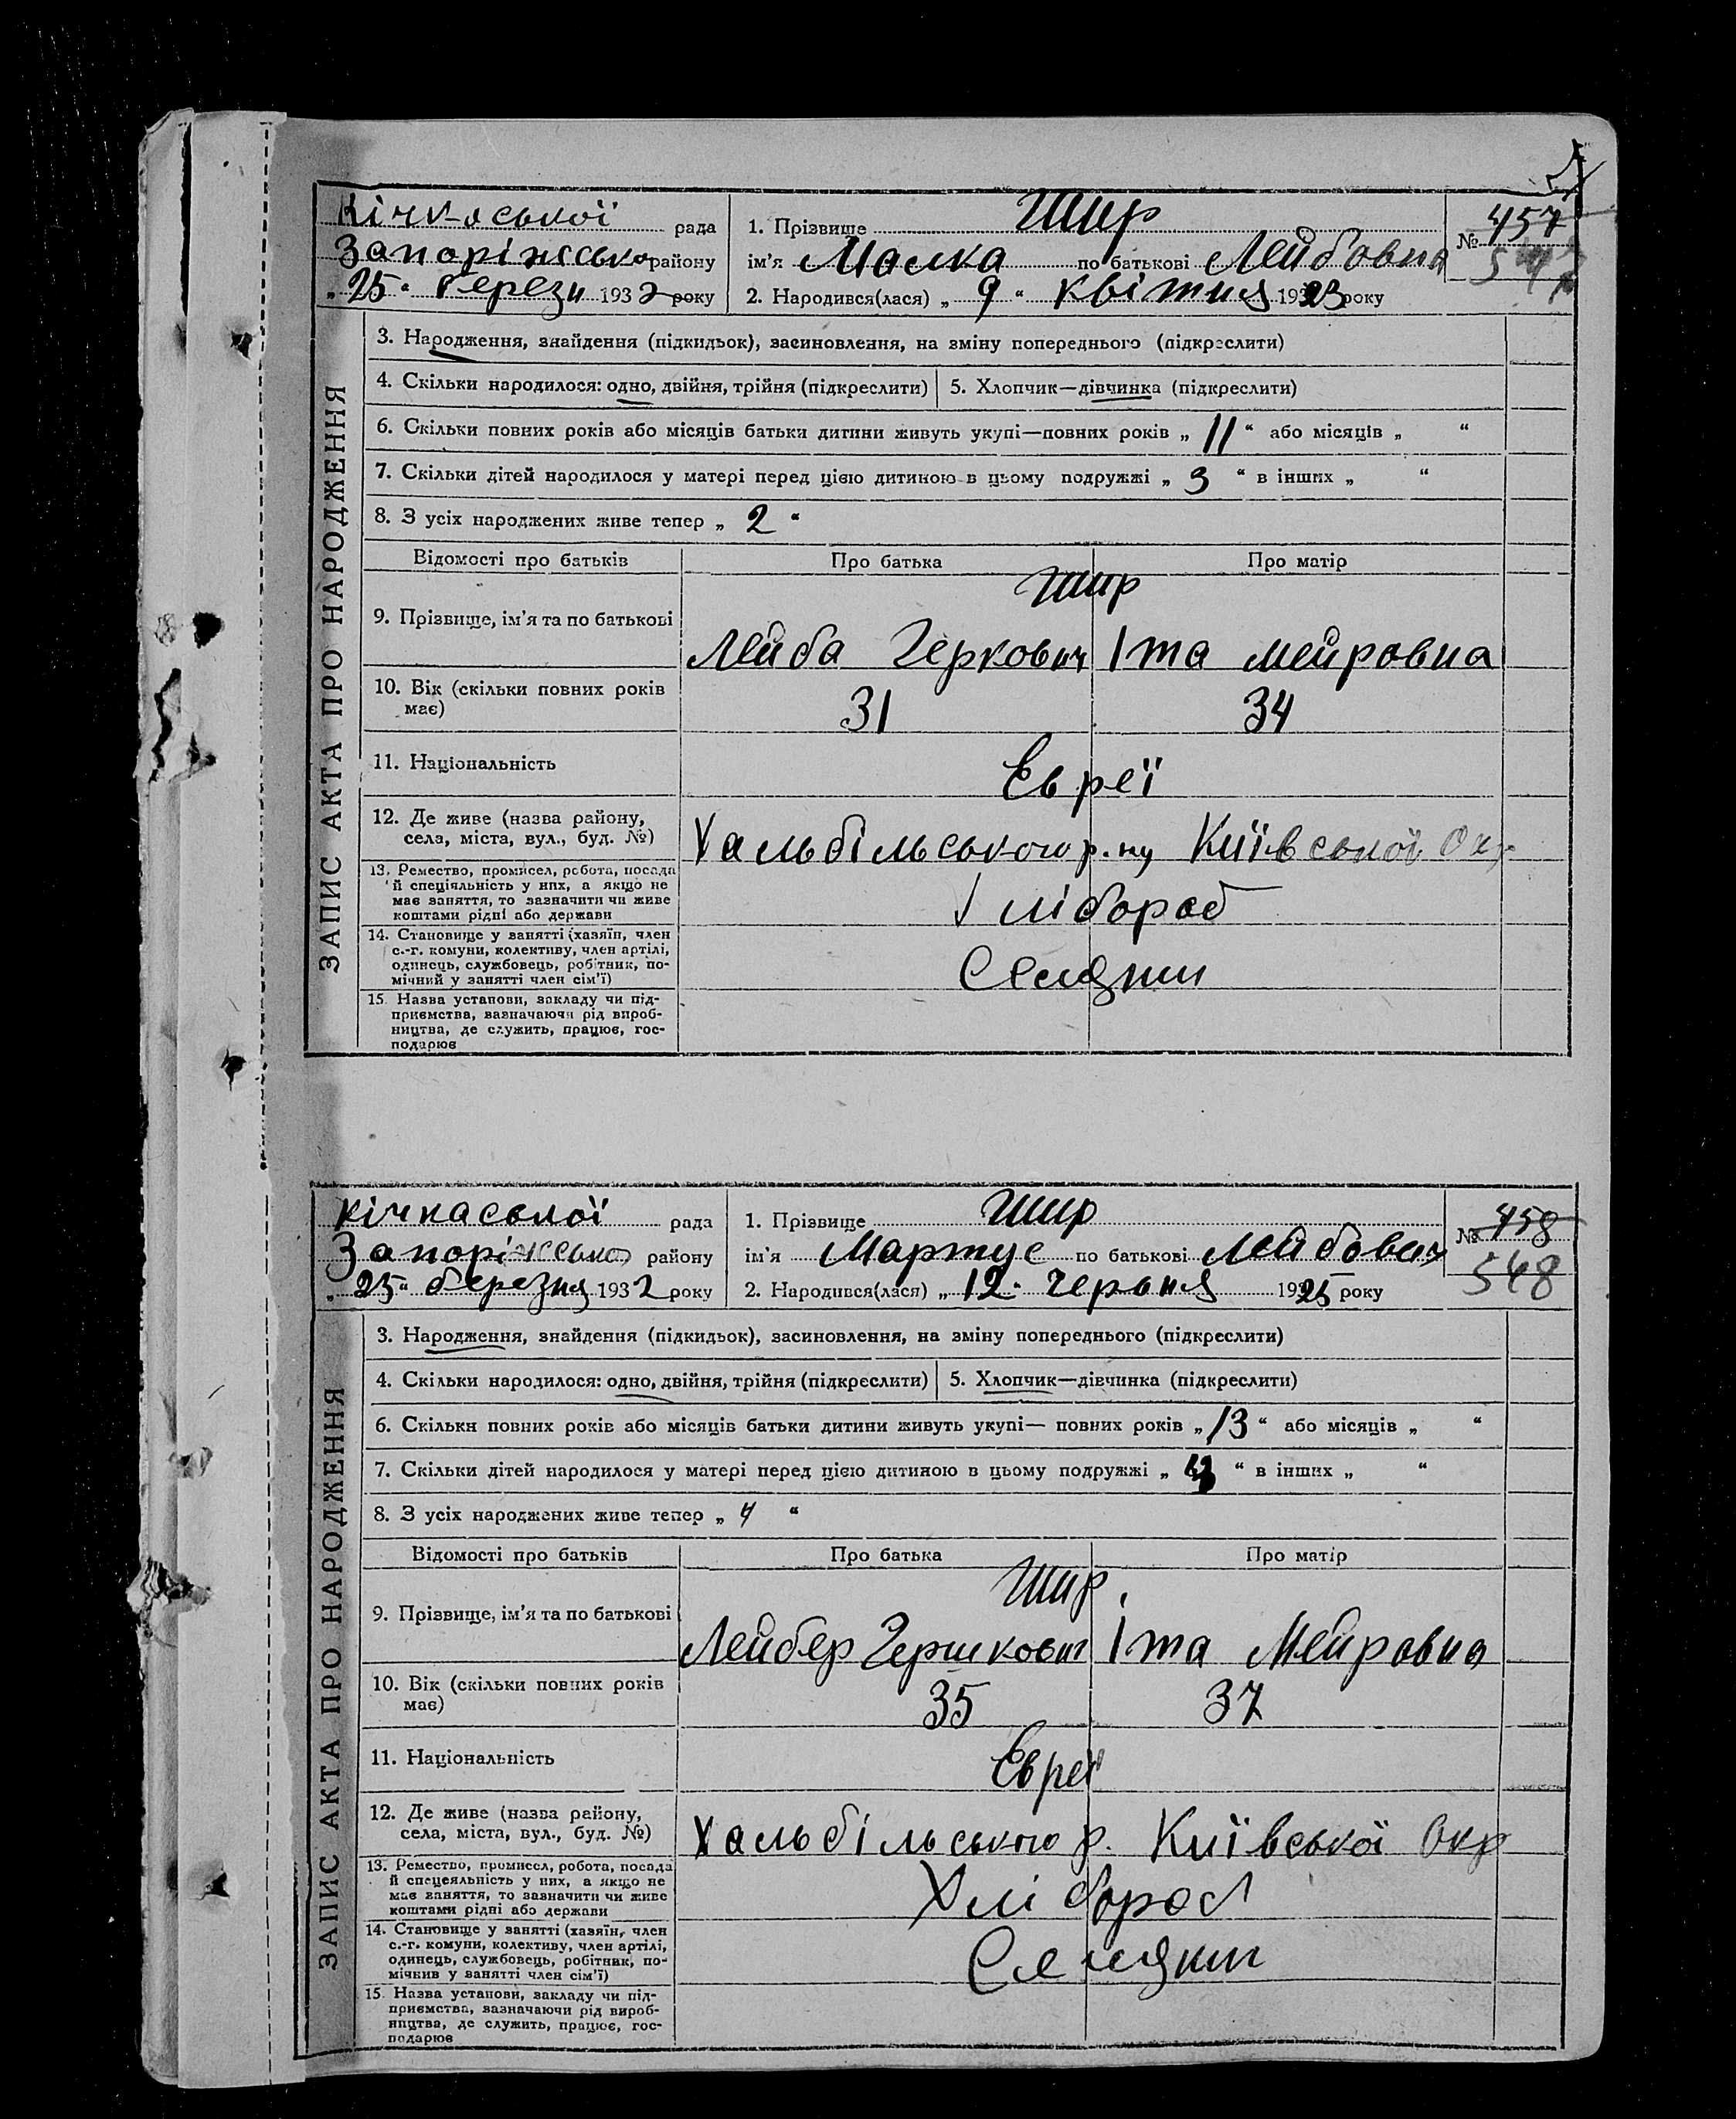 Кічкаської рада
Запоріжсько району
„25“ березн 1932 року
1. Прізвище Шир
ім'я Малка по батькові Лейбовна
2. Народився(лася) „9“ квітня 1923 року
№ 457
547
ЗАПИС АКТА ПРО НАРОДЖЕННЯ
3. Народження, знайдення (підкидьок), засиновлення, на зміну попереднього (підкреслити)
4. Скільки народилося: одно, двійня, трійня (підкреслити) 5. Хлопчик—дівчинка (підкреслити)
6. Скільки повних років або місяців батьки дитини живуть укупі—повних років „11“ або місяців „ “
7. Скільки дітей народилося у матері перед цією дитиною в цьому подружжі „3“ в інших „ “
8. З усіх народжених живе тепер „2“
Відомості про батьків Про батька Про матір
Шир
9. Прізвище, ім'я та по батькові Лейба Геркович Іта Мейровна
10. Вік (скільки повних років
має) 31 34
11. Національність Евреї
12. Де живе (назва району,
села, міста, вул., буд. №) Хальбільського р.ну Київської Окр
13. Ремество, промисел, робота, посада
й спеціяльність у них, а якщо не
має заняття, то зазначити чи живе
коштами рідні або держави
Хлібороб
14. Становище у занятті (хазяїн, член
с.-г. комуни, колективу, член артілі,
одинець, службовець, робітник, по-
мічний у занятті член сім'ї)
Селяни
15. Назва установи, закладу чи під-
приємства, вазначаючи рід вироб-
ництва, де служить, працює, гос-
подарює
Кічкаської рада
Запоріжсько району
„25“ березня 1932 року
1. Прізвище Шир
ім'я Мартус по батькові Лейбович
2. Народився(лася) „12“ червня 1925 року
№ 458
548
ЗАПИС АКТА ПРО НАРОДЖЕННЯ
3. Народження, знайдення (підкидьок), засиновлення, на зміну попереднього (підкреслити)
4. Скільки народилося: одно, двійня, трійня (підкреслити) 5. Хлопчик—дівчинка (підкреслити)
6. Скільки повних років або місяців батьки дитини живуть укупі— повних років „13“ або місяців „ “
7. Скільки дітей народилося у матері перед цією дитиною в цьому подружжі „ “ в інших „ “
8. З усіх народжених живе тепер „4“
Відомості про батьків Про батька Про матір
Шир
9. Прізвище, ім'я та по батькові Лейбер Гершкович Іта Мейровна
10. Вік (скільки повних років
має) 35 37
11. Національність Евреї
12. Де живе (назва району,
села, міста, вул., буд. №) Хальбільського р. Київської Окр
13. Ремество, промисел, робота, посада
й спецеяльність у них, а якщо не
має заняття, то зазначити чи живе
коштами рідні або держави
Хлібороб
14. Становище у занятті (хазяїн, член
с.-г. комуни, колективу, член артілі,
одинець, службовець, робітник, по-
мічнив у занятті член сім'ї)
Селяни
15. Назва установи, закладу чи під-
приємства, вазначаючи рід вироб-
ництва, де служить, працює, гос-
подарює